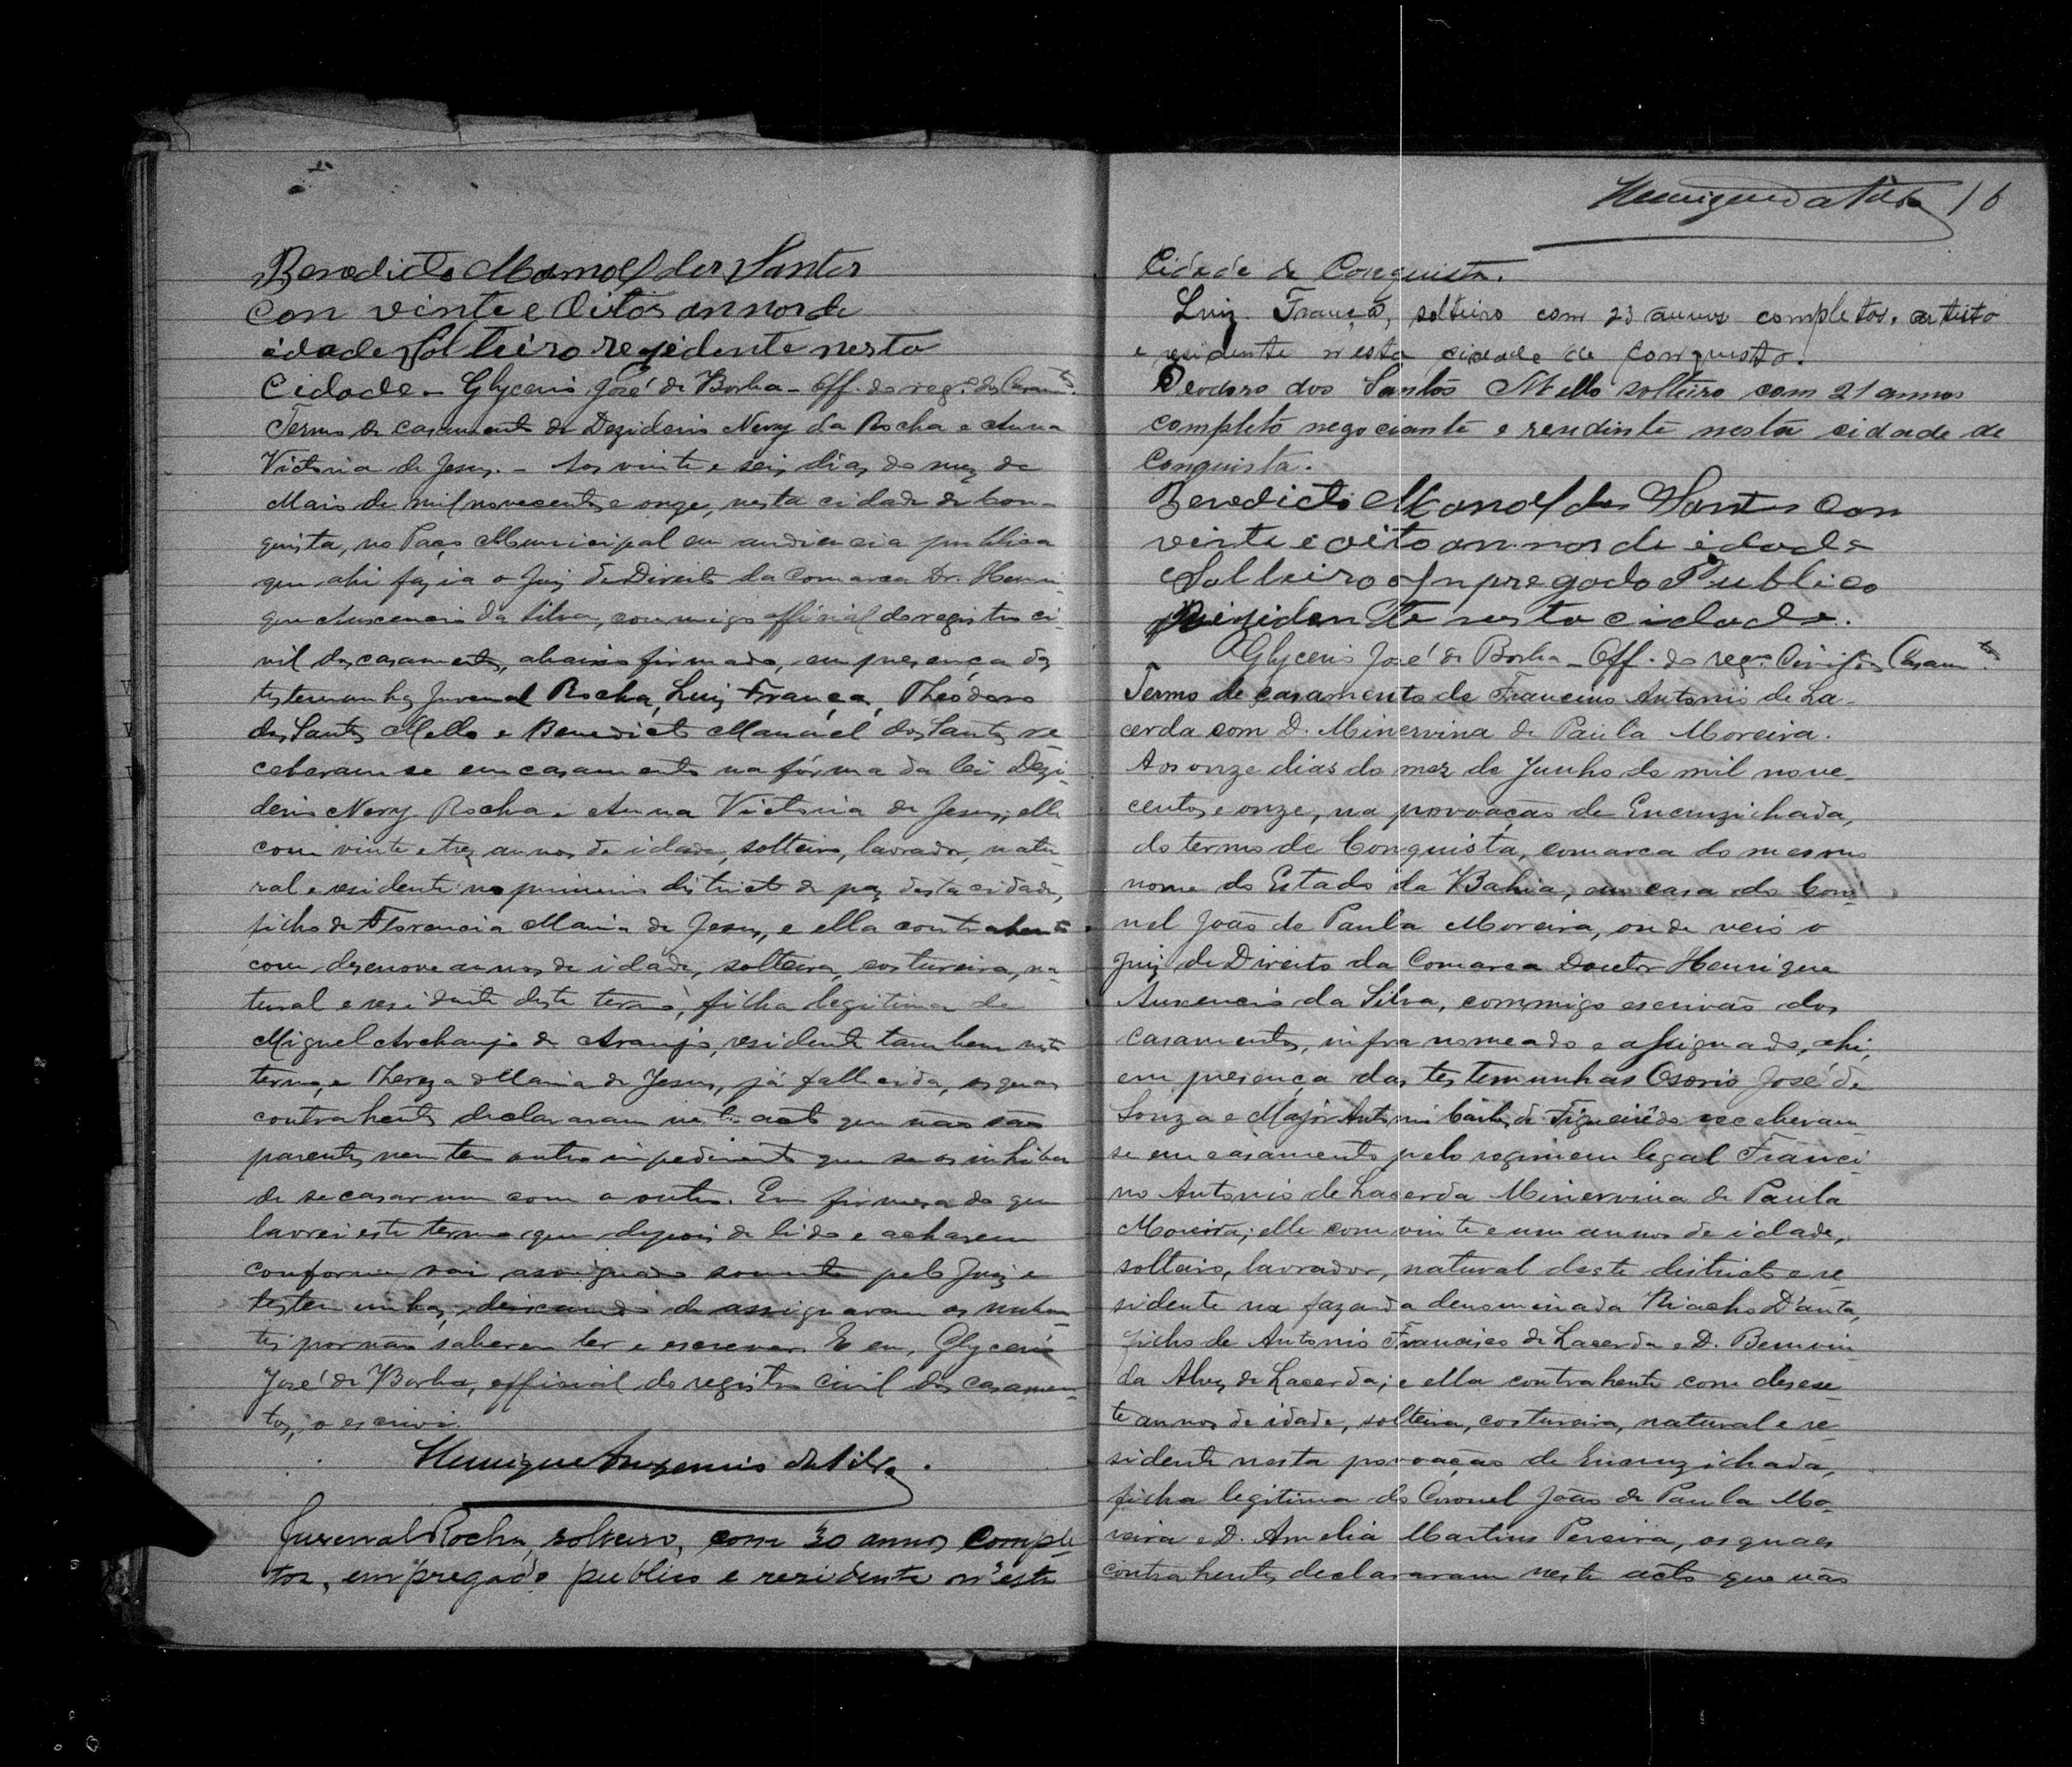 Benedicto Manoel dos Santos
con vinte e Oitos annos de
idade Solteiro rezidente nesta
Cidade - Glycerio José de Borba - Off. do reg. dos Casamtos.
Termo de casamento de Deziderio Nery da Rocha e Anna
Victoria de Jesus. - Aos vinte e seis dias do mez de
Maio de mil novecentos e onze, nesta cidade de Con-
quista, no Paço Municipal em audiencia publica
que ahi fazia o Juiz de Direito da Comarca Dr. Henri-
que Auxencio da Silva, commigo official do registro ci-
vil dos casamentos, abaixo firmado, em presença das
testemunhas Juvenal Rocha, Luiz França, Theodoro
dos Santos Mello e Benedicto Manoel dos Santos re-
ceberam se em casamento na fórma da lei Dezi-
derio Nery Rocha e Anna Victoria de Jesus; elle
com vinte e trez annos de idade, solteiro, lavrador, natu-
ral e residente no primeiro districto de paz desta cidade,
filho de Florencia Maria de Jesus, e ella contrahente
com desenove annos de idade, solteira, costureira, na-
tural e residente deste termo, filha legitima de
Miguel Archanjo de Araujo, residente tambem neste
termo, e Thereza Maria de Jesus, já fallecida, os quaes
contrahentes declararam neste acto que não são
parentes nem tem outro impedimento que se os inhiba
de se casar um com o outro. Em firmeza do que
lavrei este termo que depois de lido e acharem
conforme vai assignado somente pelo Juiz e
testemunhas, deixando de assignarem os nuben-
tes por não saberem ler e escrever. E eu, Glycerio
José de Borba, official do registro civil dos casamen-
tos, o escrevi.
Henrique Auxencio da Silva.
Juvenal Rocha, solteiro, com 30 annos comple-
tos, empregado publico e residente n'esta
Henrique da Silva 16
Cidade de Conquista.
Luiz França, solteiro com 23 annos completos, artista
e residente n'esta cidade de Conquista.
Deodoro dos Santos Mello solteiro com 21 annos
completo negociante e rendinte nesta cidade de
Conquista.
Benedicto Manoel dos Santos Con
vinte e oito annos de idade
Solteiro Enpregado Publico
Rezidente nesta cidade.
Glycerio José de Borba - Off. do reg. Civil dos Casamtos.
Termo de casamento de Francino Antonio de La-
cerda com D. Minervina de Paula Moreira.
Aos onze dias do mez de Junho de mil nove-
centos e onze, na povoação de Encruzilhada,
do termo de Conquista, comarca do mesmo
nome do Estado da Bahia, em casa do Coro-
nel João de Paula Moreira, onde veio o
Juiz de Direito da Comarca Doutor Henrique
Auxencio da Silva, commigo escrivão dos
casamentos, infra nomeado e assignado, ahi,
em presença das testemunhas Osorio José de
Souza e Major Antonio Carlos de Figueirêdo receberam
se em casamento pelo regimem legal Franci-
no Antonio de Lacerda Minervina de Paula
Moreira; elle com vinte e um annos de idade,
solteiro, lavrador, natural deste districto e re-
sidente na fazenda denominada Riacho D'anta,
filho de Antonio Francisco de Lacerda e D. Bemvin-
da Alves de Lacerda; e ella contrahente com desese-
te annos de idade, solteira, costureira, natural e re-
sidente nesta povoação de Encruzilhada,
filha legitima do Coronel João de Paula Mo-
reira e D. Amelia Martins Pereira, os quaes
contrahentes declararam neste acto que não